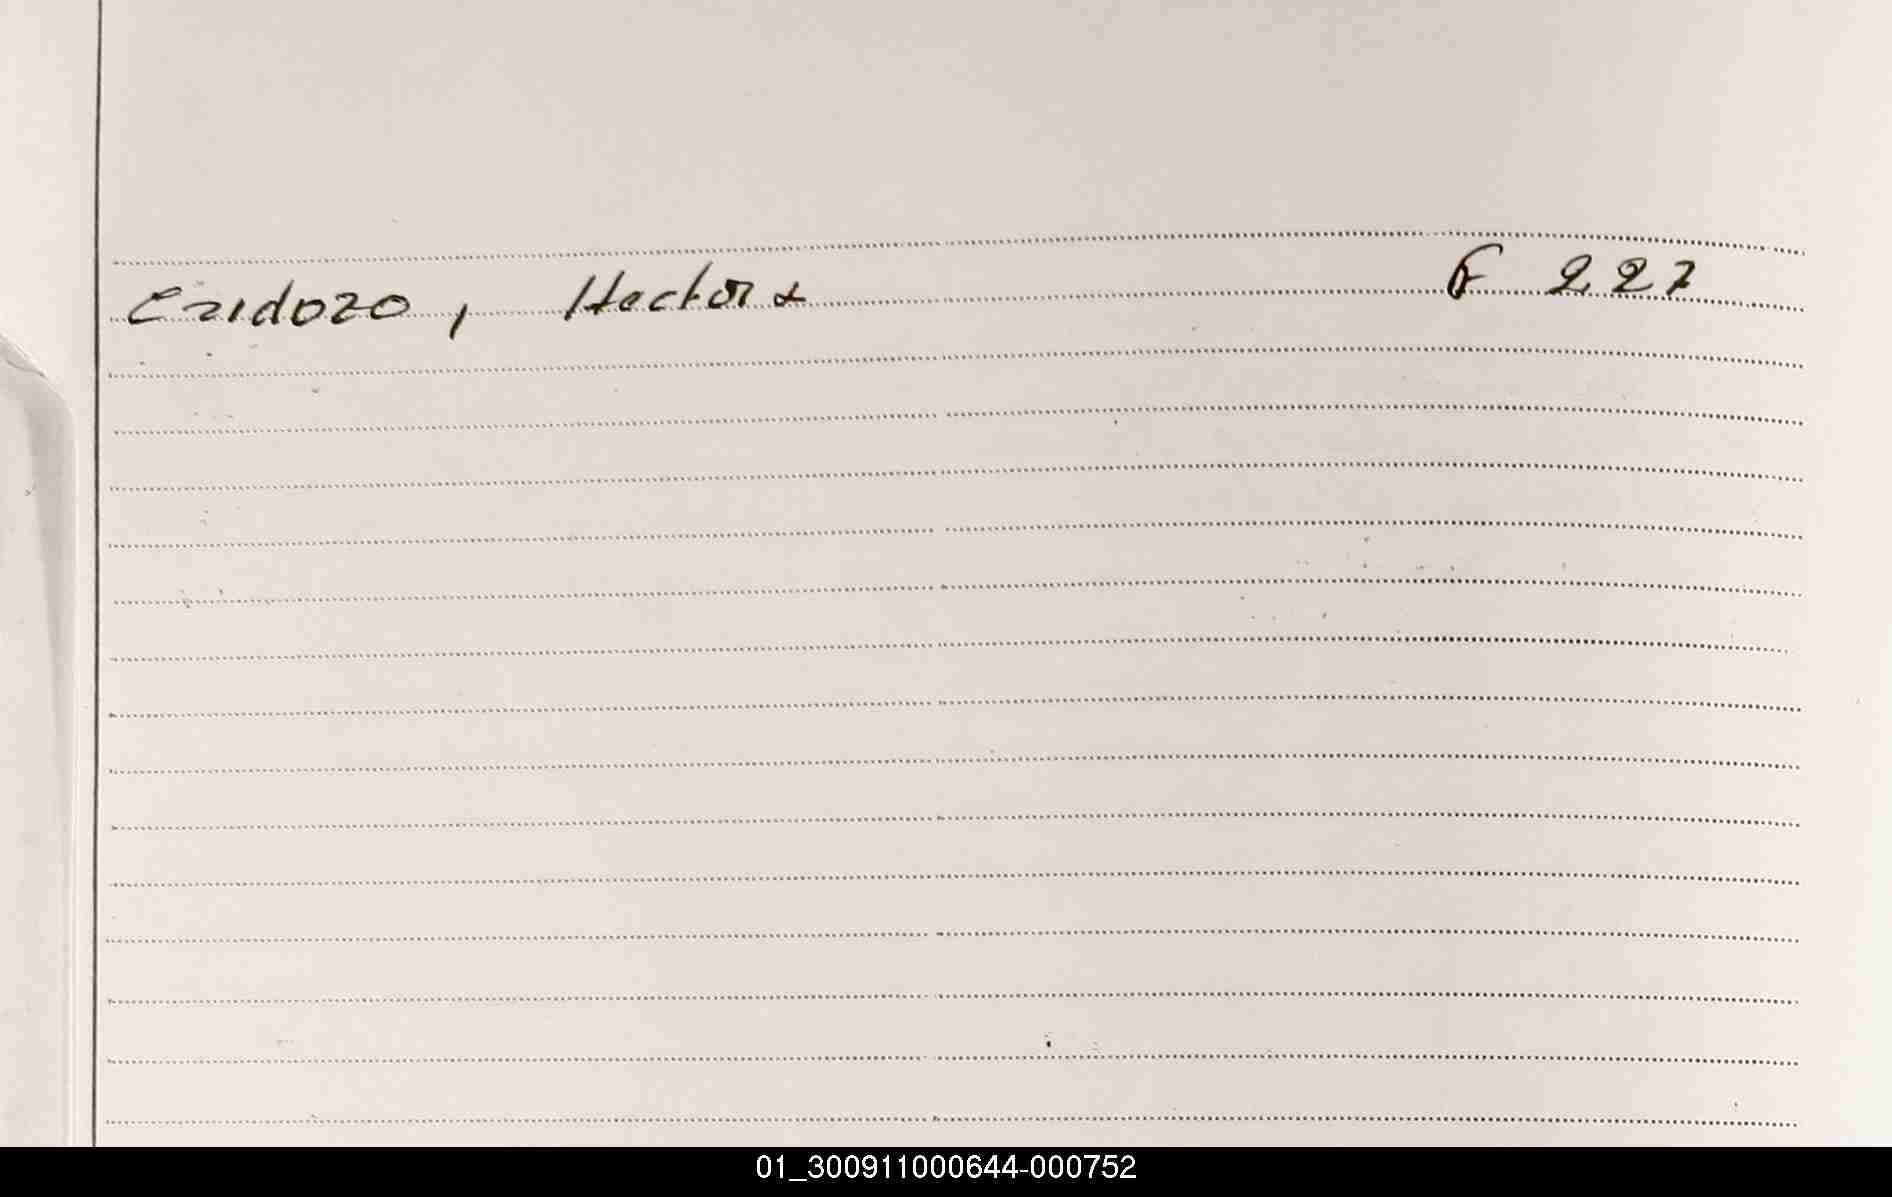 Ezidozo, Hector &
F 227
01_300911000644-000752